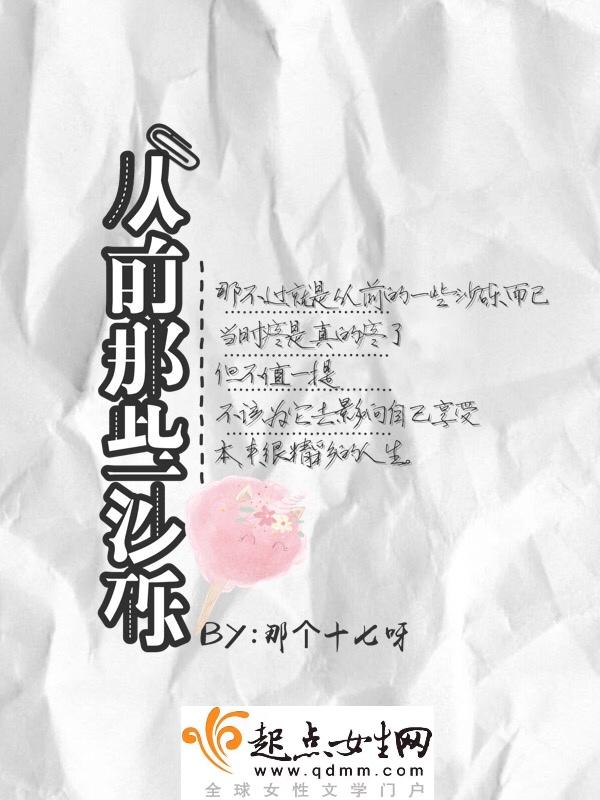 从前那些沙砾
那不过就是从前的一些沙砾而已
当时疼是真的疼了
但不值一提
不该为它去影响自己享受
本来很精彩的人生。
BY:那个十七呀
起点女生网
www.qdmm.com
全球女性文学门户